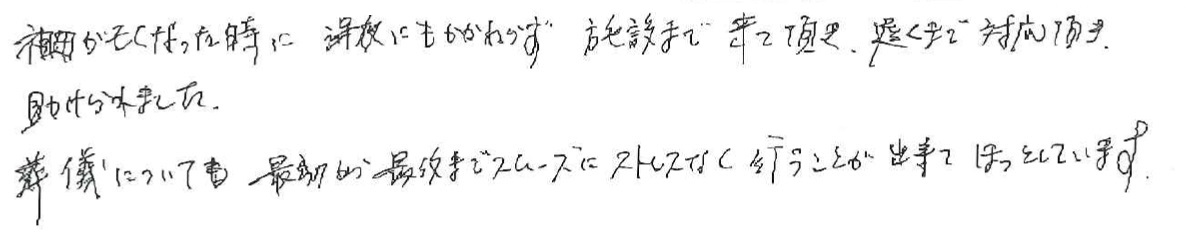 が亡くなった時に 深夜にもかかわらず 施設まで 来て頂き、遅くまで 対応頂き、
助けられました。
葬儀についても 最初から最後までスムーズに ストレスなく 行うことが 出来て ほっとしています。